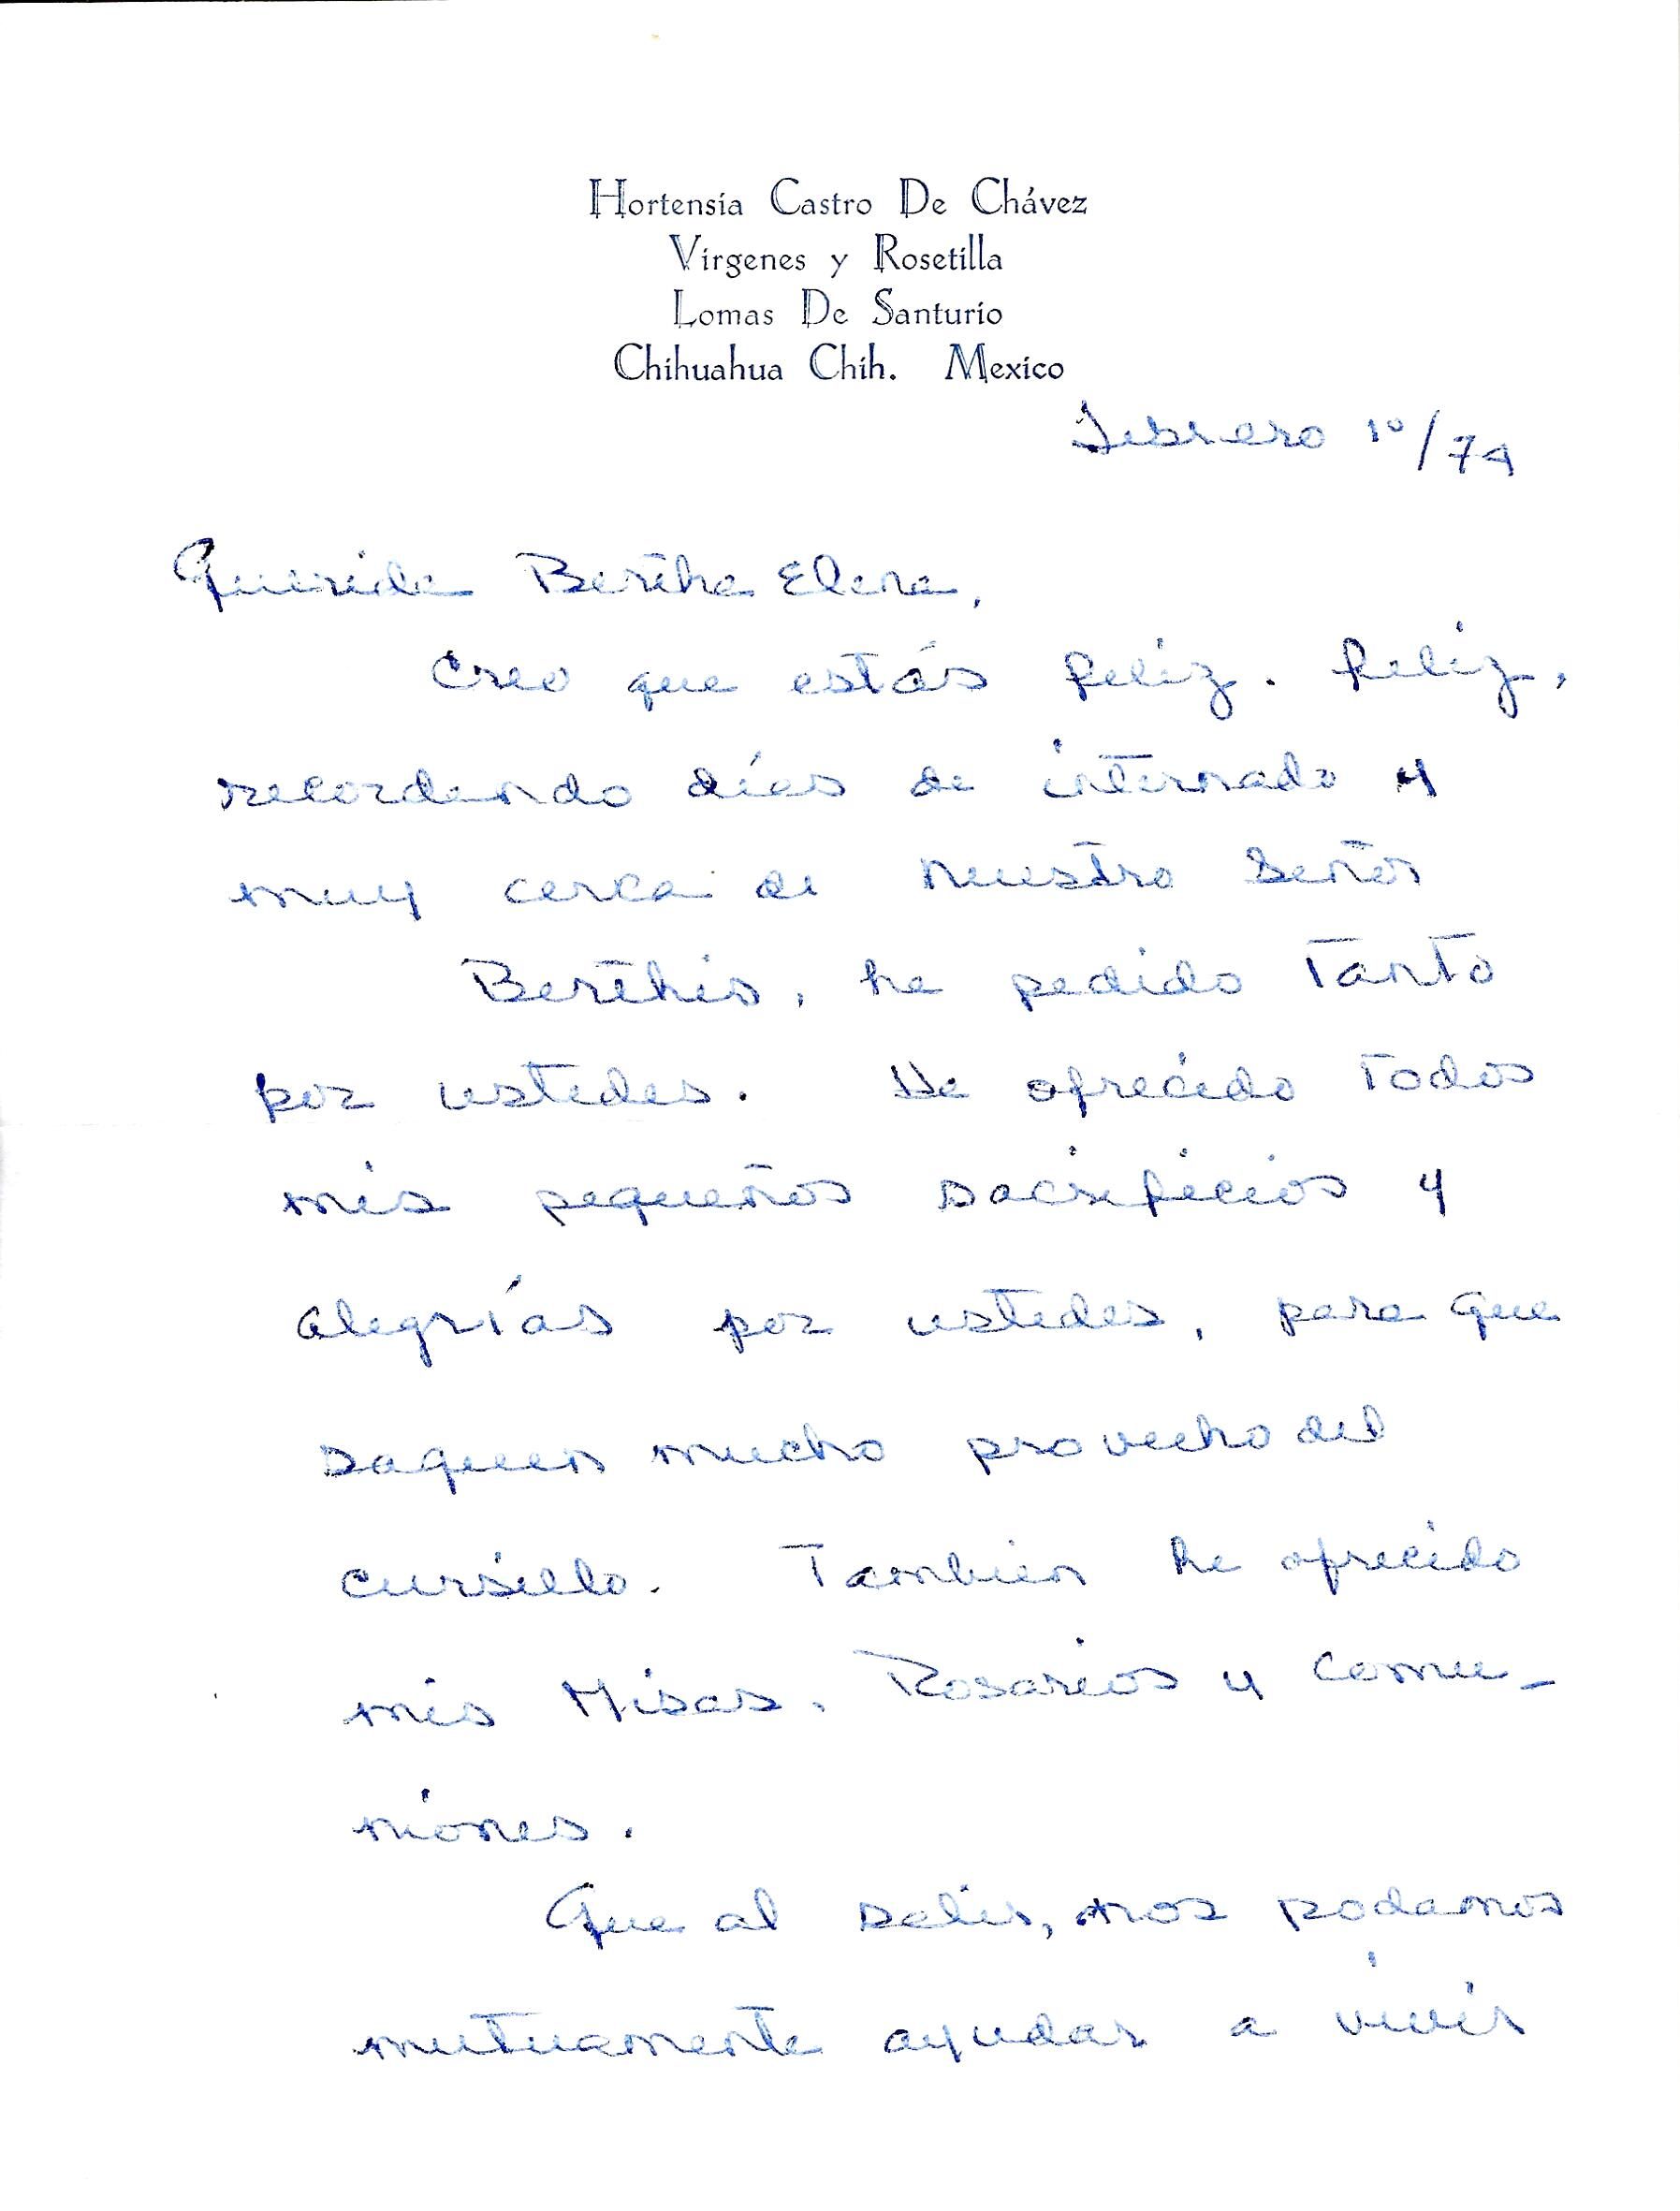 Hortensia Castro De Chávez
Virgenes y Rosetilla
Lomas De Santurio
Chihuahua Chih. Mexico
Febrero 1º/74
Querida Bertha Elena,
Creo que estás feliz. feliz,
recordando días de internado y
muy cerca de Nuestro Señor
Berthis, he pedido Tanto
por ustedes. He ofrecido Todos
mis pequeños sacrificios y
alegrías por ustedes, para que
saquen mucho provecho del
cursillo. Tambien he ofrecido
mis Misas, Rosarios y comu-
niones.
Que al salir, nos podamos
mutuamente ayudar a vivir